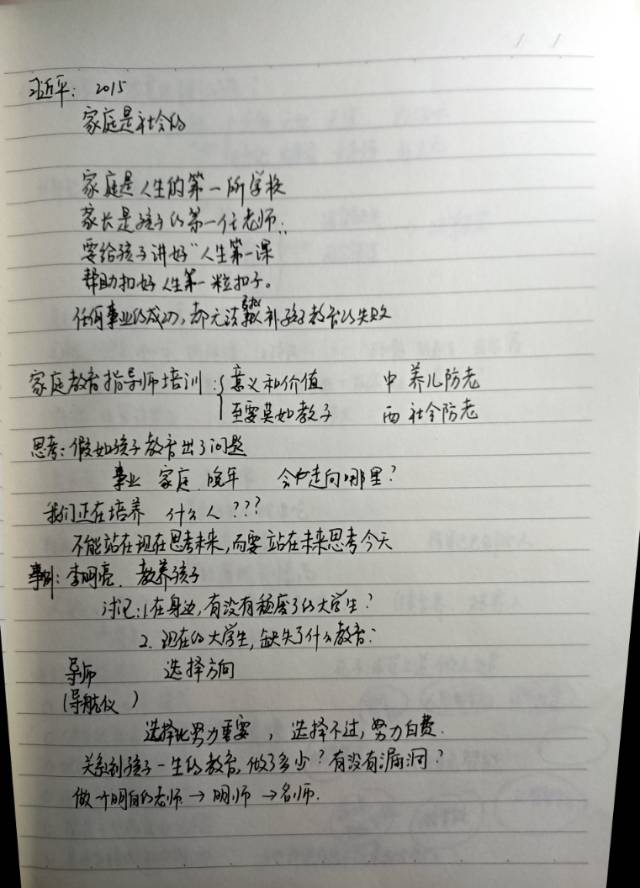 习近平：2015
家庭是社会的
家庭是人生的第一所学校
家长是孩子的第一任老师，
要给孩子讲好“人生第一课
帮助扣好人生第一粒扣子。
任何事业的成功，都无法弥补孩子教育的失败
家庭教育指导师培训：意义和价值 中 养儿防老
至要莫如教子 西 社会防老
思考：假如孩子教育出了问题
事业 家庭 晚年 会走向哪里？
我们正在培养 什么人？？？
不能站在现在思考未来，而要站在未来思考今天
事例：李明亮、教养孩子
讨论：1在身边，有没有颓废了的大学生？
2. 现在的大学生，缺失了什么教育：
导师 选择方向
（导航仪）
选择比努力重要，选择不过，努力白费.
关系到孩子一生的教育，做了多少？有没有漏洞？
做一个明白的老师→明师→名师.